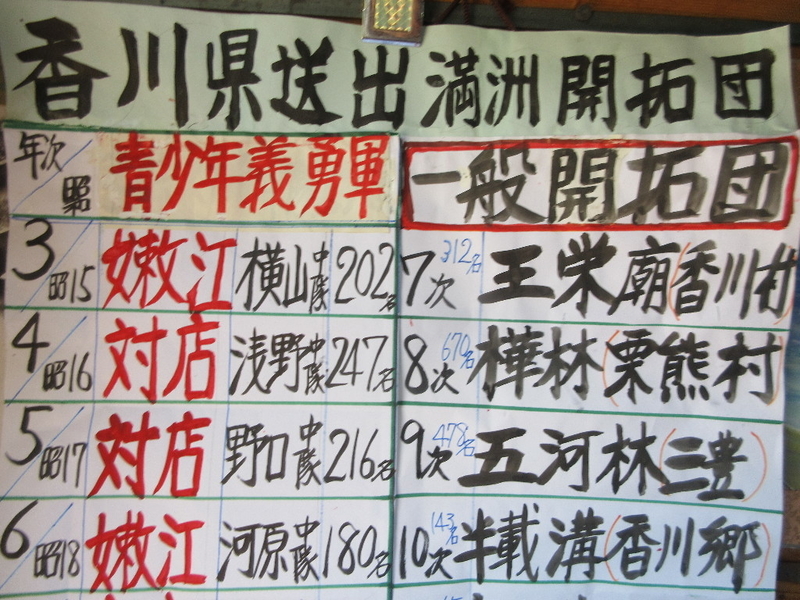 香川県送出満洲開拓団
年次 昭和 青少年義勇軍 一般開拓団
3 昭15 嫩江 横山中隊 202名 7次 312名 王栄廟(香川村
4 昭16 対店 浅野中隊 247名 8次 670名 樺林(栗熊村
5 昭17 対店 野口中隊 216名 9次 478名 五河林(三豊)
6 昭18 嫩江 河原中隊 180名 10次 143名 半載溝(香川郷)